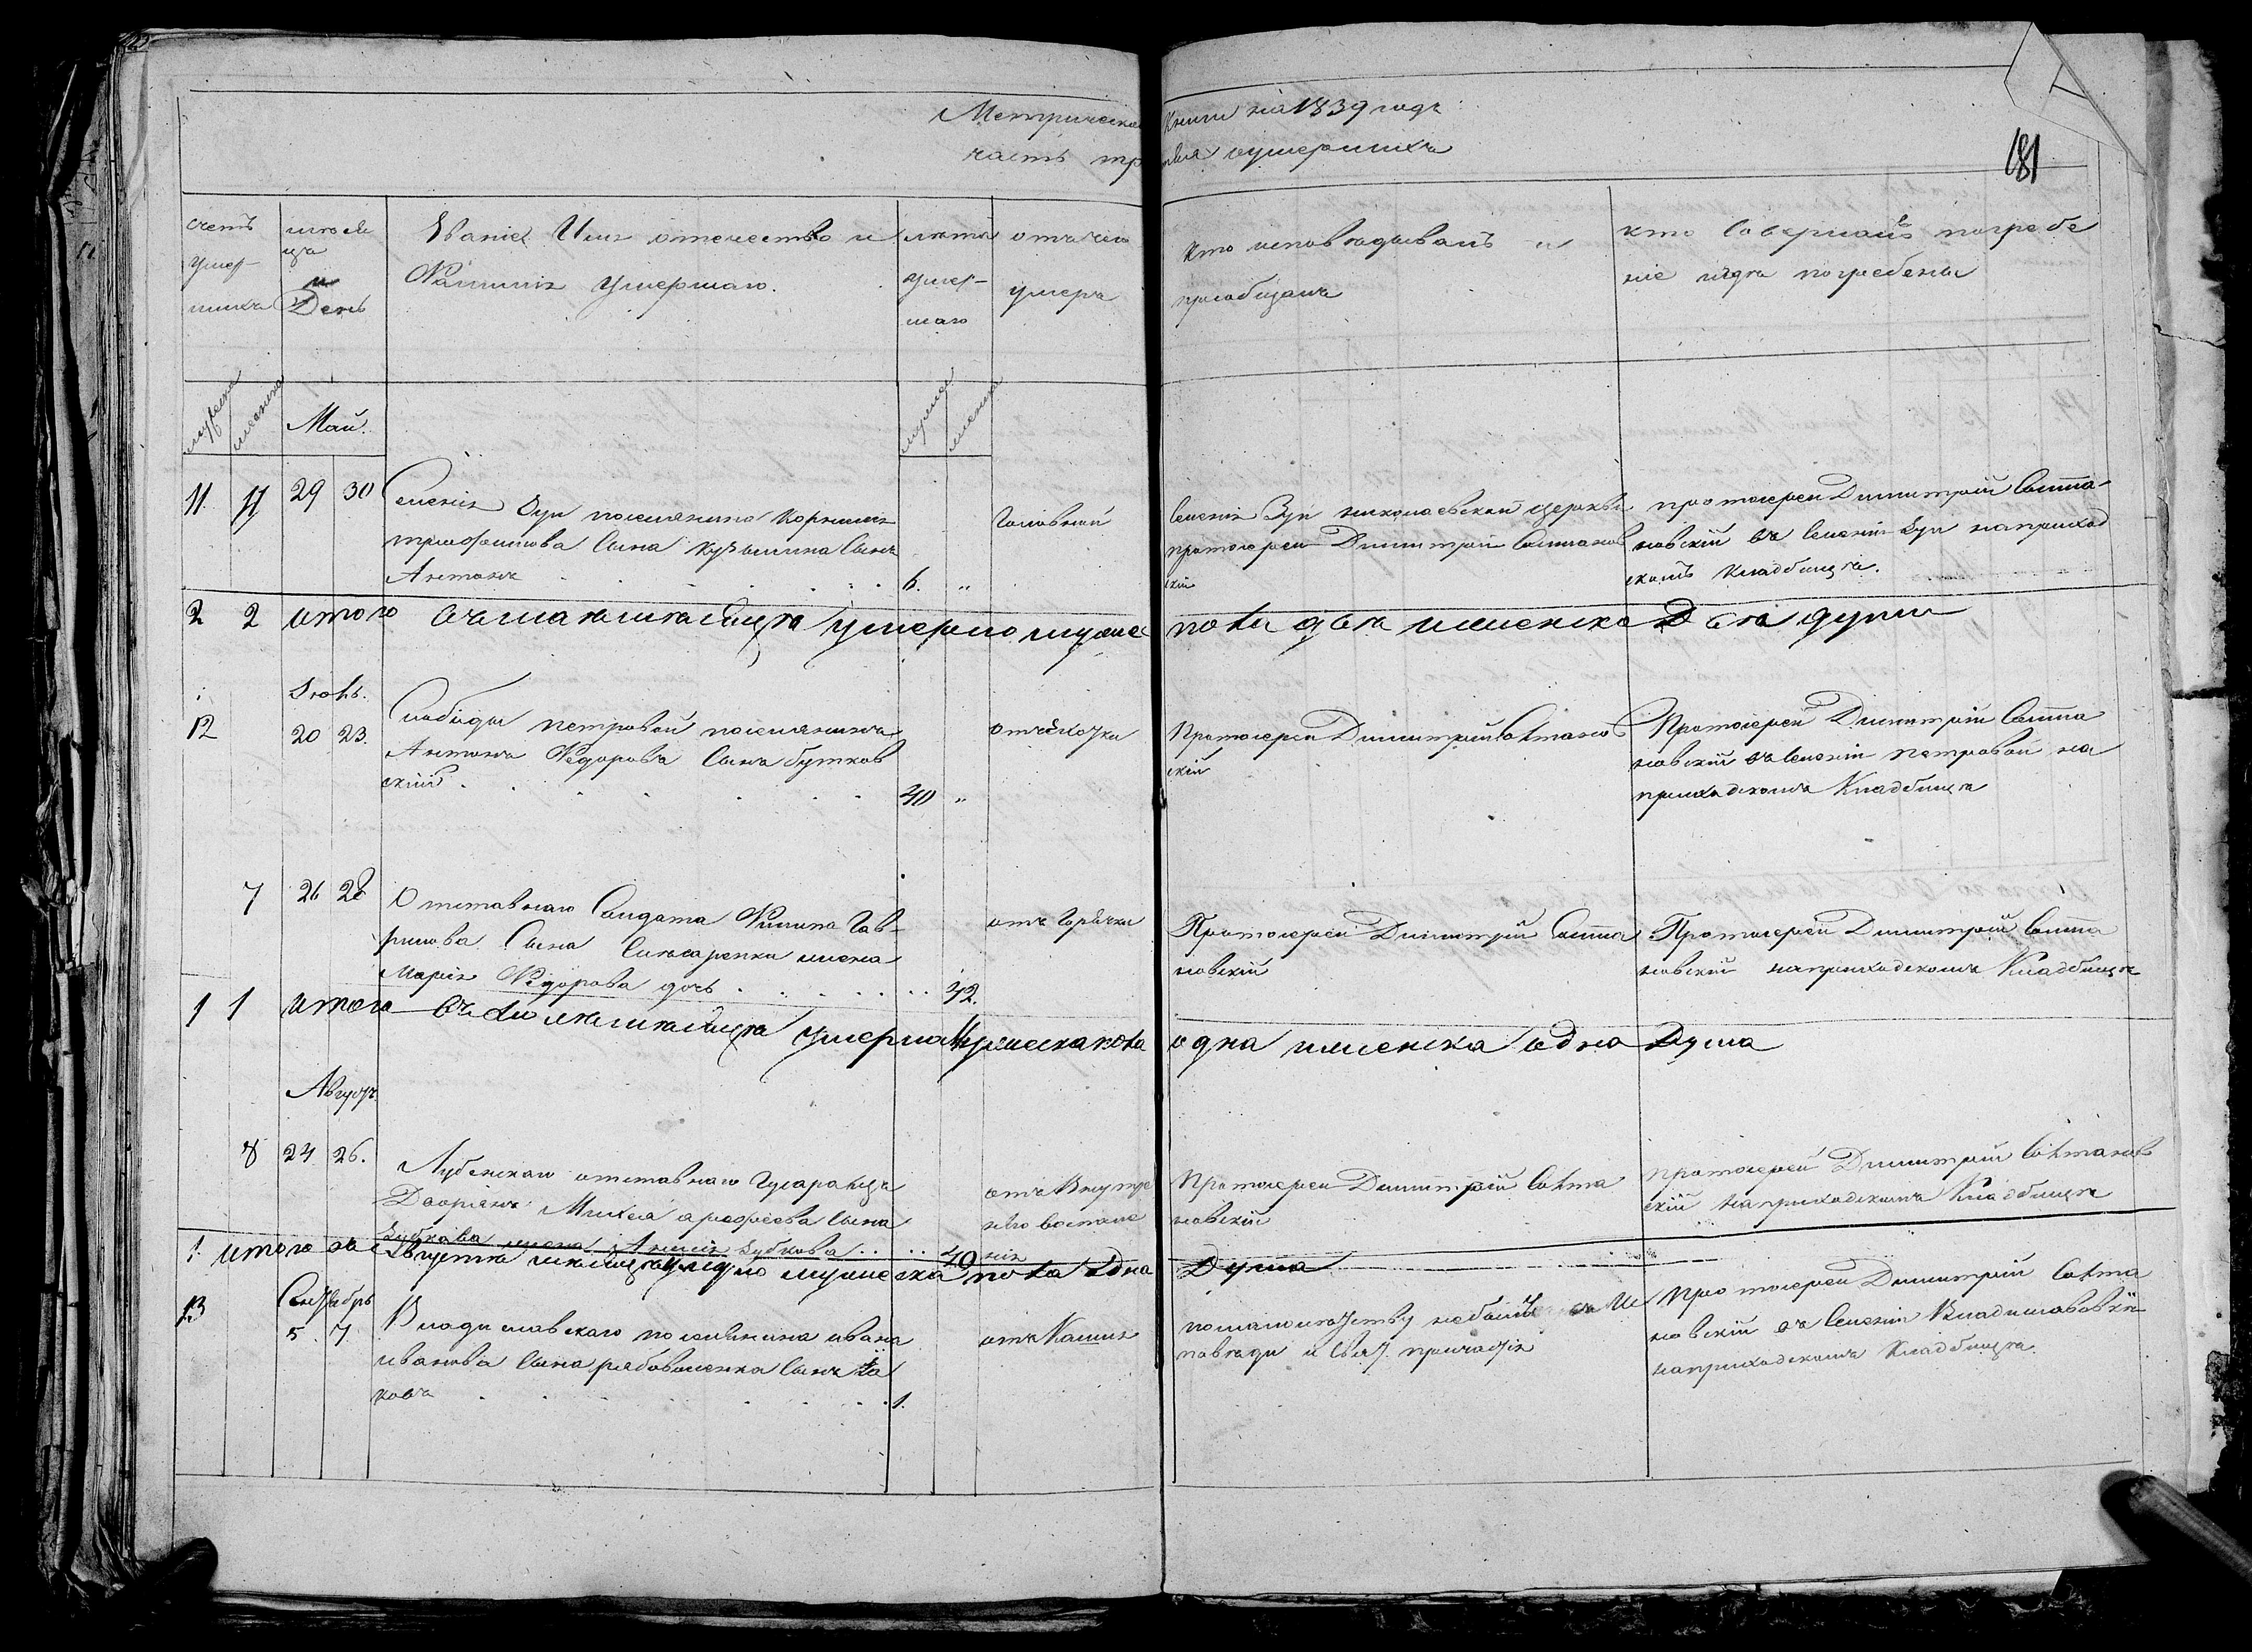 Метрической Книги на 1839 годъ
часть третья о умершихъ
181
счетъ умер-шихъ
месяцъ и День
Званіе Имя отечество и Фамилія Умершаго.
лета умер-шаго
отъ чего умеръ
кто исповедывалъ и приобщалъ
кто Совершалъ погребе
ніе и где погребены
мужеска женска
Май.
мужеска женска
11. 11 29 30
Селенія Зуи поселянина Корнилія
трифонова Сына Кузьмина Сынъ
Антонъ 6. „
Головной
Селенія Зуи николаевской церкви
протоиерей Димитрий Солтанов
скій
протоиерей Димитрий Солта-
новскій въ Селеніи Зуи на приход
скомъ Кладбище.
2 2 итого въ мае месяце умерло мужеска пола две и женска Две души
Іюнь.
12 20 23.
Слободы петровой поселянинъ
Антонъ Федоровъ Сынъ бутков
скій 40 „
отъ
Протоиерей Димитрий Солтанов
скій
Протоиерей Димитрій Солта
новскій въ Селеніи петровой на
приходскомъ Кладбище
7 26 28
Отставнаго Солдата Филипа Гав-
рилова Сына Слюсаренки жена
Марія Федорова дочь 42.
отъ Горячки
Протоиерей Димитрий Солта
новскій
Протоиерей Димитрий Солта
новскій на приходскомъ Кладбище
1 1 итого въ месяце умерло Мужеска пола одна и женска одна Душа
Августъ.
8 24 26.
Лубенскаго отставнаго Гусара изъ
Дворянъ Михея арефиева Сына
Зубкова жена Анисія Зубкова 40
отъ Внутре
нго воспале
нія
Протоиерей Димитрий Солта
новскій
протоиерей Димитрий Солтанов
скій На приходскомъ Кладбище
1. итого въ Августе месяце умерло мужеска пола Одна Душа
Сентябрь
13 5. 7.
Владиславскаго поселянина ивана
иванова Сына рябоволенка Сынъ Іа
ковъ 1.
отъ Кашля
по малолетству небылъ на Ис
поведи и Свят. причастія
Протоиерей Димитрий Солта
новскій въ Селеніи Владиславовки
на приходскомъ Кладбище.